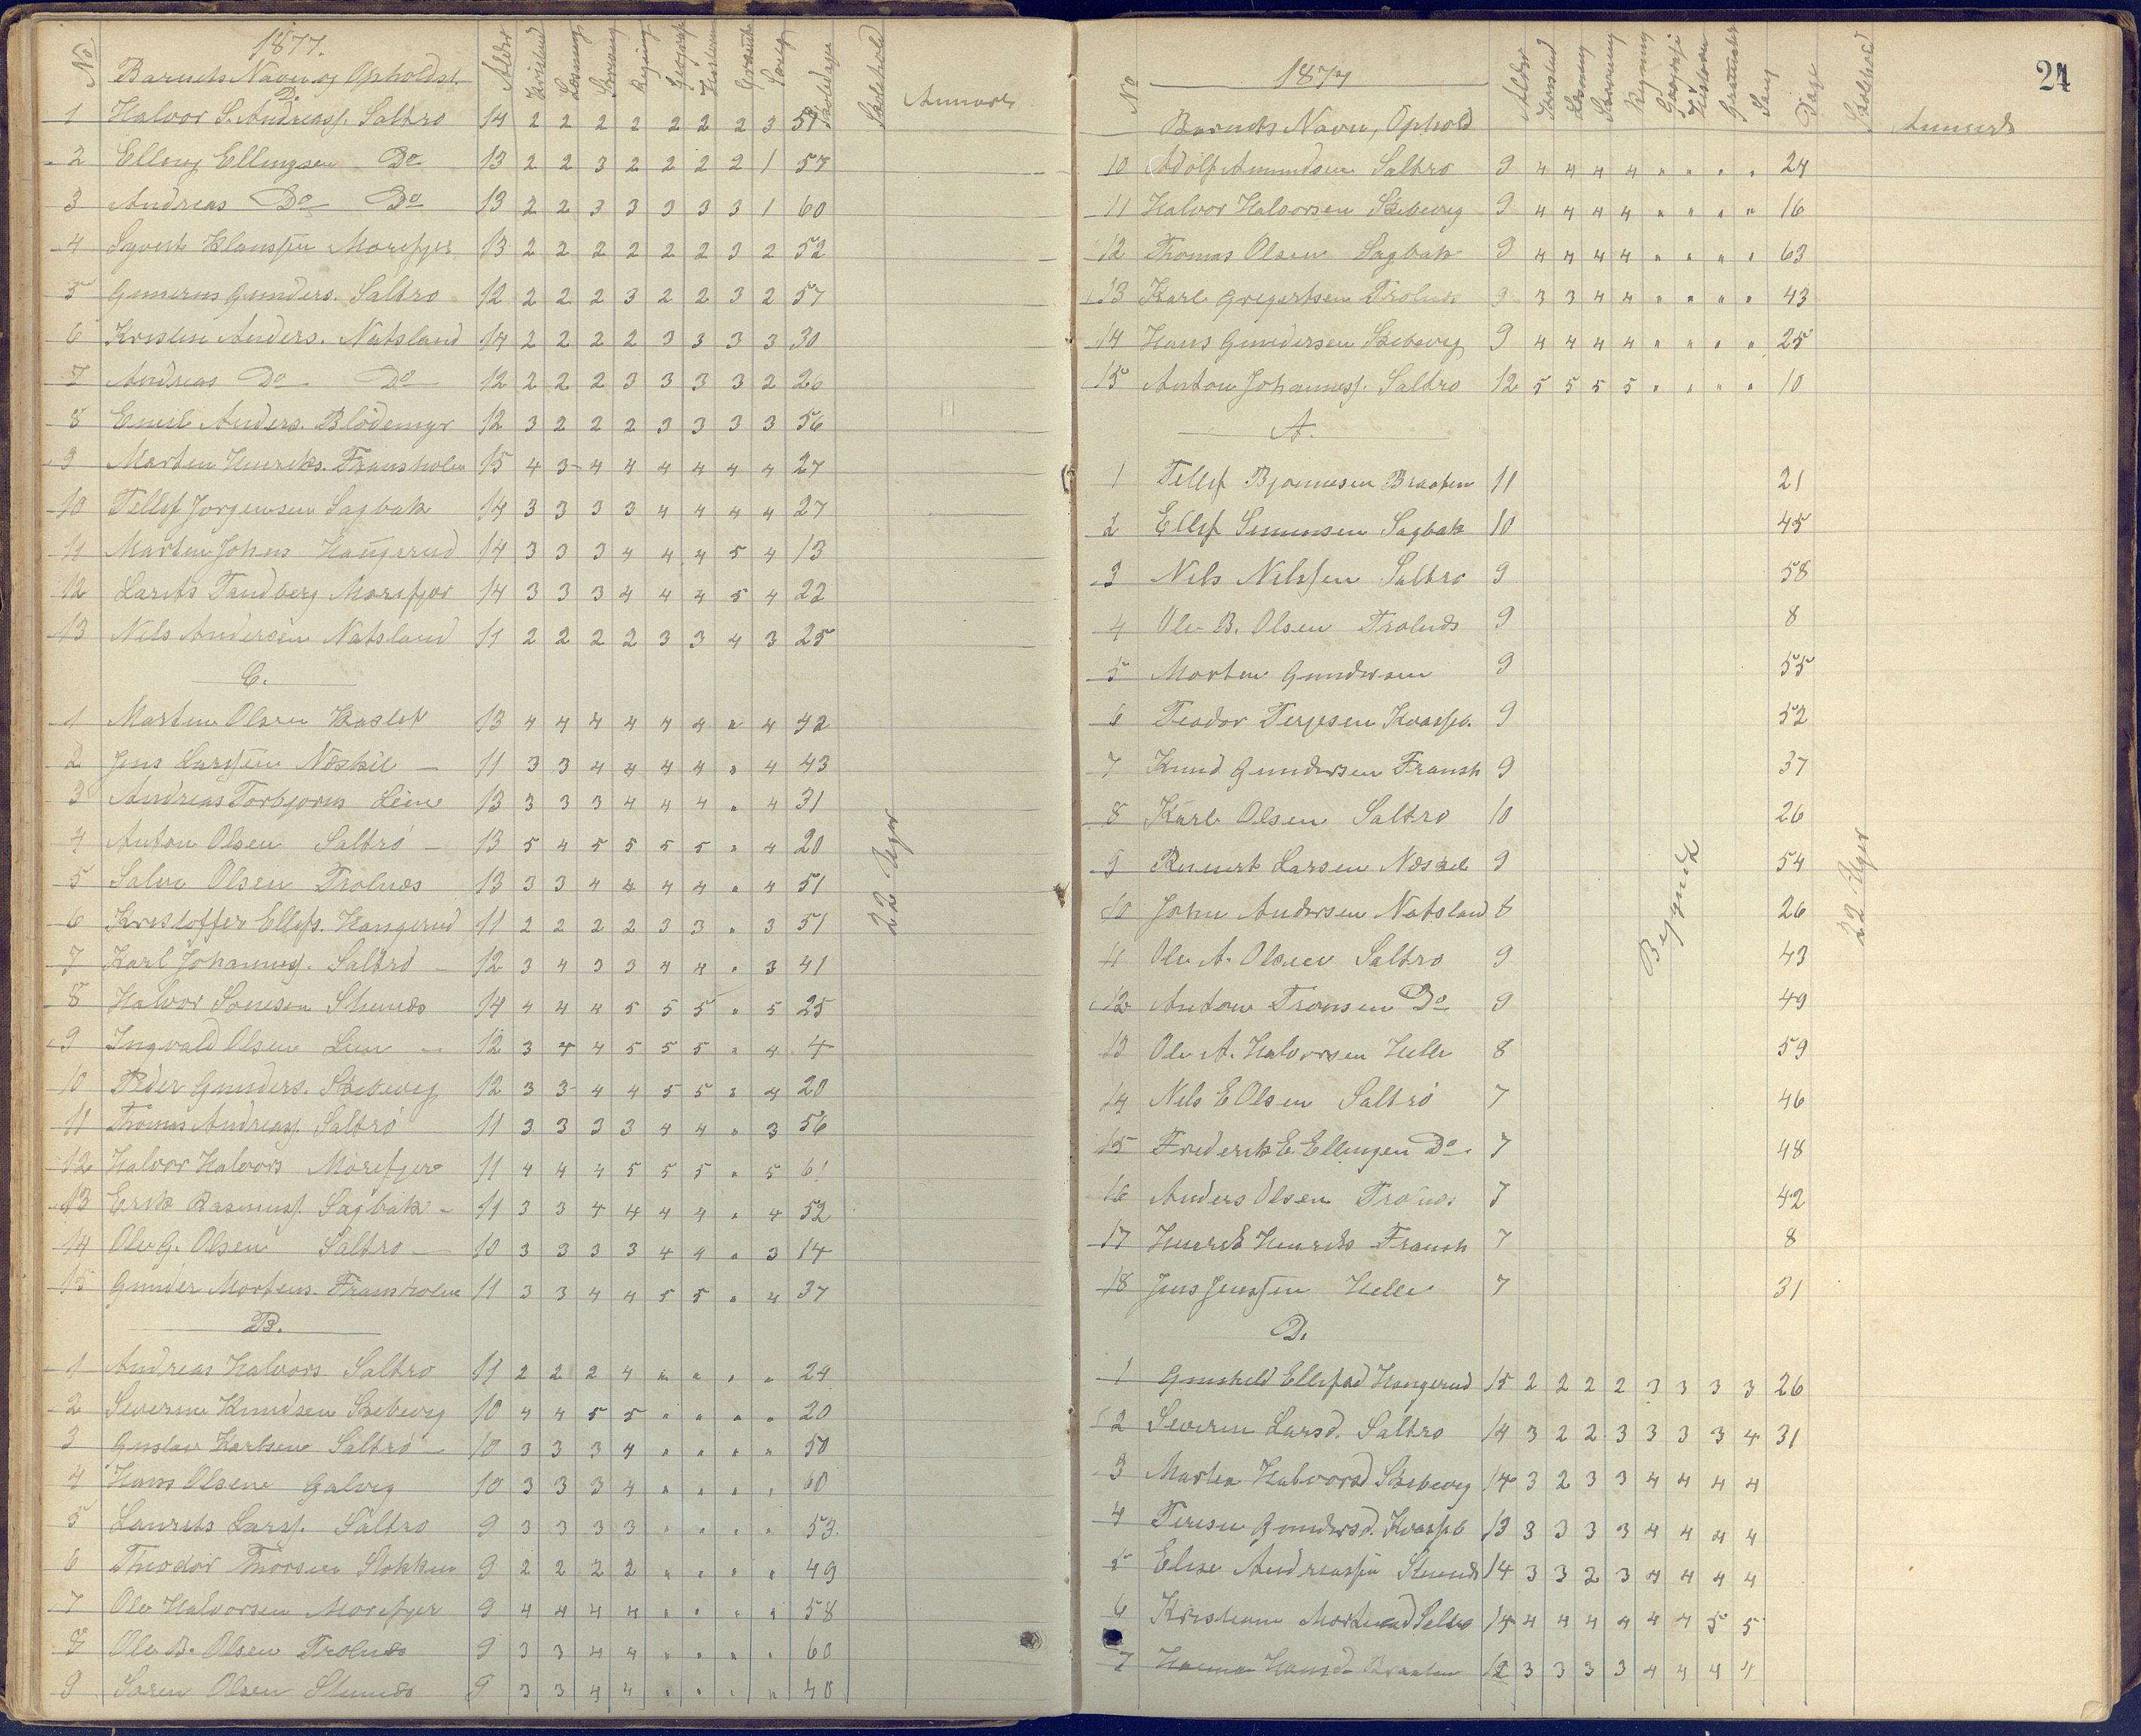 1877.
No Barnets Navn og Opholdst. Alder Kristend Læsning Skrivning Regning Geografi Historie Grammatik Sang Skoledage Skolehold Anmærk
D.
1 Halvor S. Andreass. Saltrø 14 2 2 2 2 2 2 2 3 51
2 Elling Ellingsen Do 13 2 2 3 2 2 2 2 1 57
3 Andreas Do Do 13 2 2 3 3 3 3 3 1 60
4 Syvert Klaussen Morefjer 13 2 2 2 2 2 2 3 2 52
5 Gunders. Saltrø 12 2 2 2 3 2 2 3 2 57
6 Kristen Anders. Natsland 14 2 2 2 2 3 3 3 3 30
7 Andreas Do Do 12 2 2 2 3 3 3 3 2 26
8 Emil Anders. Blødemyr 12 3 2 2 2 3 3 3 3 56
9 Marten Henriks. Fransholm 15 4 3 4 4 4 4 4 4 27
10 Tellef Jørgensen Sagbak 14 3 3 3 3 4 4 4 4 27
11 Marten Johns Haugerud 14 3 3 3 4 4 4 5 4 13
12 Larits Tandberg Morefjær 14 3 3 3 4 4 4 5 4 22
13 Nils Andersen Natsland 11 2 2 2 2 3 3 4 3 25
C.
1 Marten Olsen Kaslet 13 4 4 4 4 4 4 " 4 42
2 Jens Larssen Næskil — 11 3 3 4 4 4 4 " 4 43
3 Andreas Torbjørns Leen 13 3 3 3 4 4 4 " 4 31
4 Anton Olsen Saltrø — 13 5 4 5 5 5 5 " 4 20
5 Salve Olsen Trolnæs 13 3 3 4 4 4 4 " 4 51
6 Kristoffer Ellefs. Haugerud 11 2 2 2 2 3 3 " 3 51
7 Karl Johanness. Saltrø — 12 3 4 3 3 4 4 " 3 41
8 Halvor Stuenæs 14 4 4 4 5 5 5 " 5 25
9 Ingvald Olsen Leen — 12 3 4 4 5 5 5 " 4 4
10 Peder Gunders. Skibevig 12 3 3 4 4 5 5 " 4 20
11 Thomas Andreass. Saltrø 11 3 3 3 3 4 4 " 3 56
12 Halvor Halvors Morefjer 11 4 4 4 5 5 5 " 5 61
13 Erik Rasmuss. Sagbak — 11 3 3 4 4 4 4 " 4 52
14 Ole G. Olsen Saltrø — 10 3 3 3 3 4 4 " 3 14
15 Gunder Mortens. Fransholm 11 3 3 4 4 5 5 " 4 37
22 Uger
B.
1 Andreas Halvors. Saltrø 11 2 2 2 4 " " " " 24
2 Severin Knudsen Skibevig 10 4 4 5 5 " " " " 20
3 Gustav Karlsen Saltrø — 10 3 3 3 4 " " " " 50
4 Hans Olsen Galvig 10 3 3 3 4 " " " " 60
5 Laurits Larss. Saltrø 9 3 3 3 3 " " " " 53
6 Theodor Thorsen Stokken 9 2 2 2 2 " " " " 49
7 Ole Halvorsen Morefjer 9 4 4 4 4 " " " " 58
8 Ole B. Olsen Trolnæs 9 3 3 4 4 " " " " 60
9 Søren Olsen Stuenæs 9 3 3 4 4 " " " " 40
24
1877
No Barnets Navn, Ophold Alder Kristend Læsning Skrivning Regning Geografi Historie Grammatik Sang Dage Skolehold Anmærk
10 Adolf Amundsen Saltrø 9 4 4 4 4 " " " " 24
11 Halvor Halvorsen Skibevig 9 4 4 4 4 " " " " 16
12 Thomas Olsen Sagbak 9 4 4 4 4 " " " " 63
13 Karl Gregertsen Trolnæs 9 3 3 4 4 " " " " 43
14 Hans Gundersen Skibevig 9 4 4 4 4 " " " " 25
15 Anton Johanness. Saltrø 12 5 5 5 5 " " " " 10
A.
1 Tellef Bjornnesen Braaten 11 21
2 Ellef Simmonsen Sagbak 10 45
3 Nils Nilssen Saltrø 9 58
4 Ole B. Olsen Trolnæs 9 8
5 Morten Gundersen 9 55
6 Teodor Terjesen 9 52
7 Knud Gundersen Fransh 9 37
8 Karl Olsen Saltrø 10 26
9 Larsen Næskil 9 54
10 John Andersen Natsland 8 26
11 Ole A. Olsen Saltrø 9 43
12 Anton Tronsen Do 9 49
13 Ole A. Halvorsen Helle 8 59
14 Nils E Olsen Saltrø 7 46
15 Frederik E. Ellingsen Do. 7 48
16 Anders Olsen Trolnæs 7 42
17 Henrik Henriks Fransh 7 8
18 Jens Jenssen Helle 7 31
Begynd
22 Uger
D.
1 Gunhild Ellefsd Haugerud 15 2 2 2 2 3 3 3 3 26
2 Severin Larsd. Saltrø 14 3 2 2 3 3 3 3 4 31
3 Martea Halvorsd Skibevig 14 3 2 3 3 4 4 4 4
4 Terese Gundersd. 13 3 3 3 3 4 4 4 4
5 Elise Stuenæs 14 3 3 2 3 4 4 4 4
6 Saltrø 14 4 4 4 4 4 4 5 5
7 Hansd Braaten 12 3 3 3 3 4 4 4 4